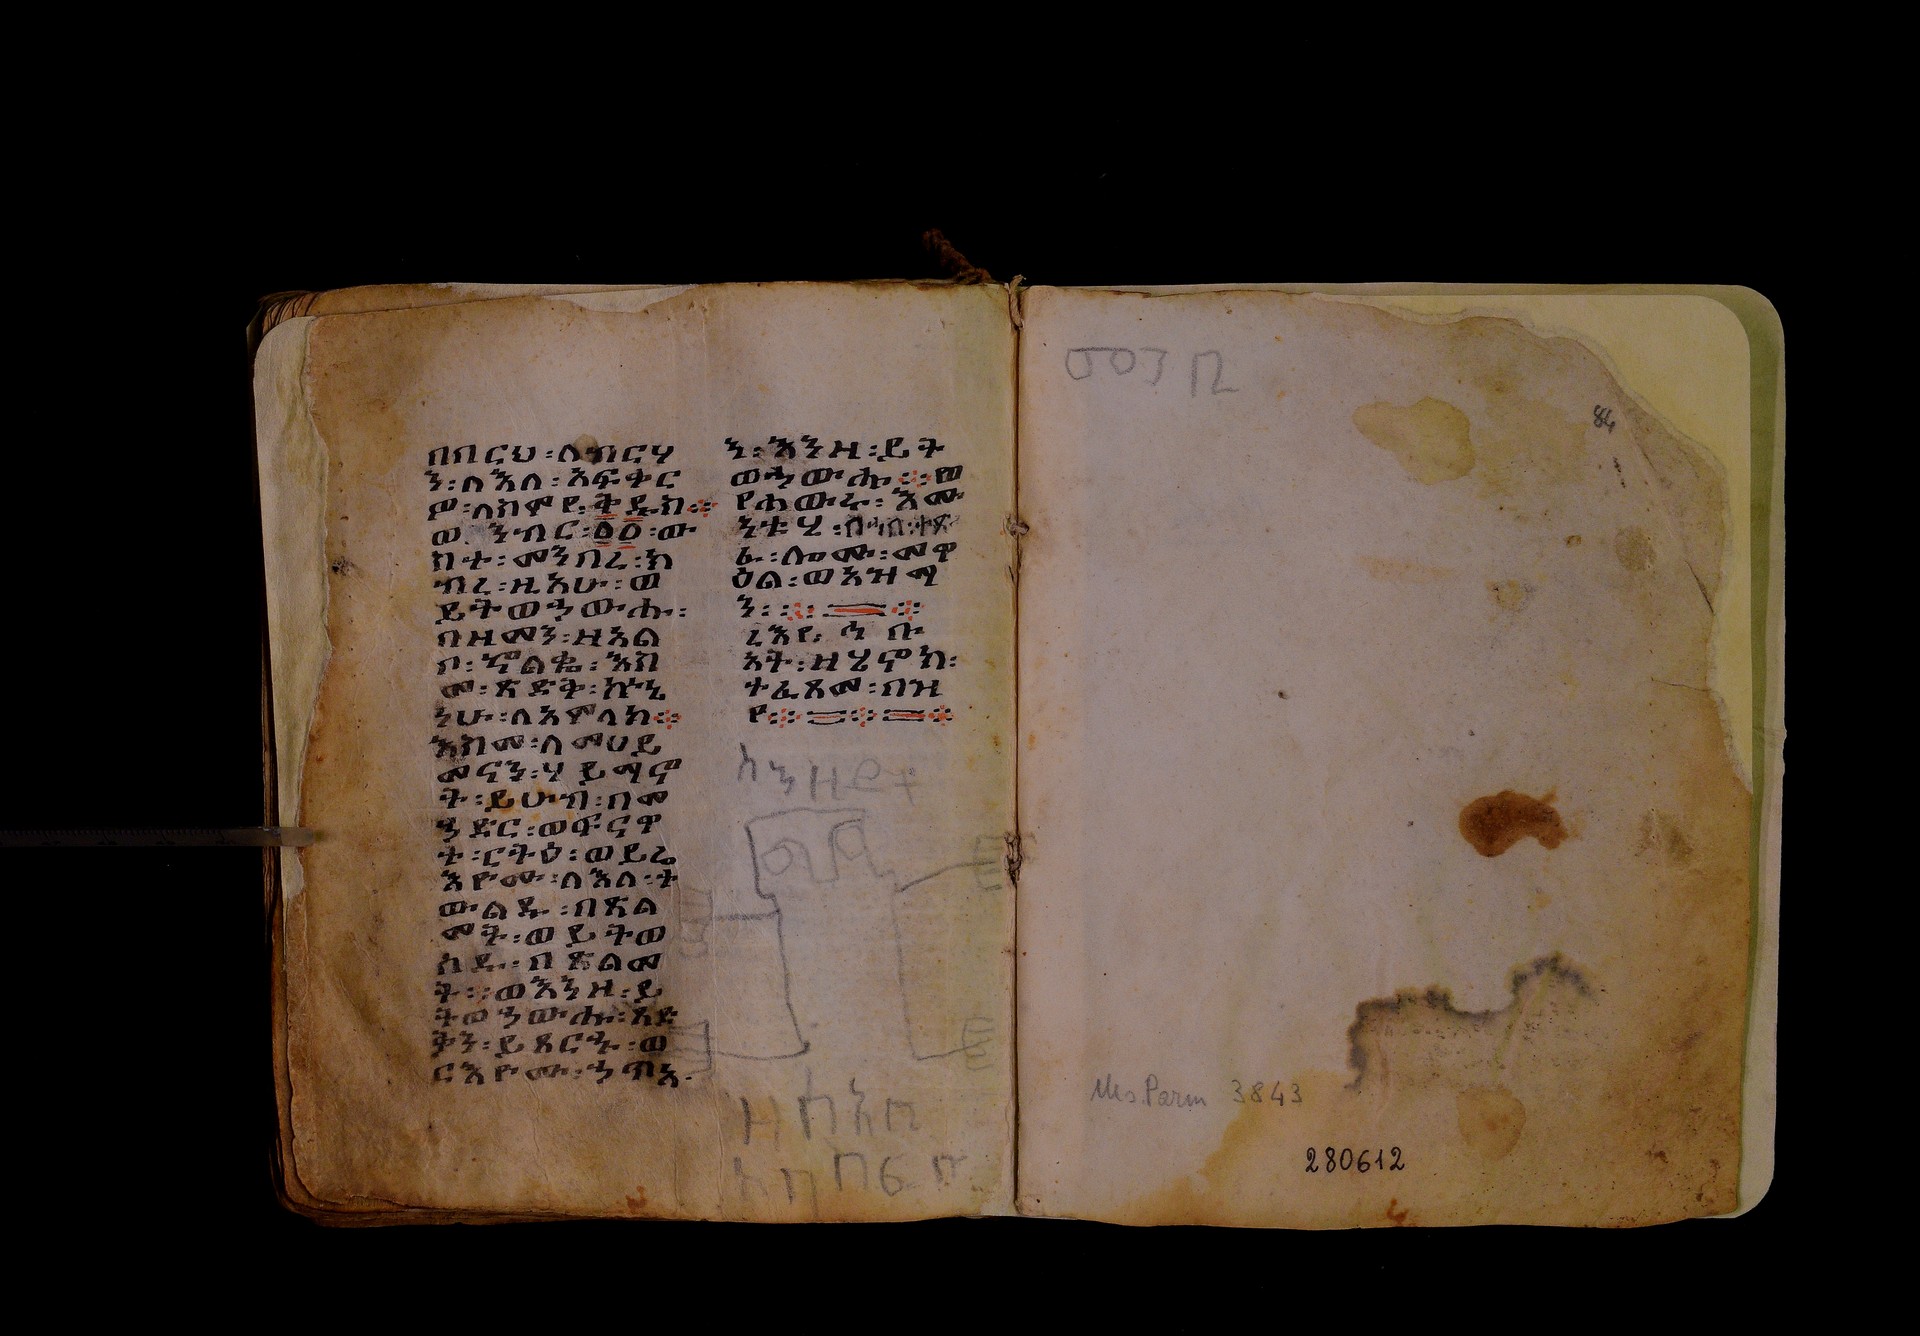 በብርህ፡ለብርሃ
ን፡ለእለ፡አፍቀር
ዎ፡ለስምየ፡ቅዱስ፨
ወ ንብር፡፩፩፡ው
ስተ፡መንበረ፡ክ
ብረ፡ዚአሁ፡ወ
ይትወኃውሑ፡
በዘመን፡ዘአል
ቦ፡ኆልቈ፡እስ
መ፡ጽድቅ፡ኵነ
ኔሁ፡ለአምላክ፨
እስመ፡ለመሀይ
መናን፡ሃይማኖ
ት፡ይሁብ፡በመ
ኃድር፡ወፍናዋ
ት፡ርትዕ፡ወይሬ
እዮሙ፡ለእለ፡ት
ውልዱ፡በጽል
መት፡ወይትወ
ለዱ፡በጽልመ
ት፡፡ወእንዘ፡ይ
ትወኃውሑ፡ጻድ
ቅን፡ይጸርኁ፡ወ
ርእዮሙ፡ኃጥአ
ን፡እንዘ፡ይት
ወኃውሑ፨ወ
የሐውሩ፡እሙ
ንቱሂ፡በኀበ፡ተጽ
ፈ፡ሎሙ፡መዋ
ዕል፡ወአዝማ
ን፡፨፨
ረእየ ነቡ
አት፡ዘሄኖክ፡
ተፈጸመ፡በዝ
የ፨፨፨
84
Ms. Parm 3843
280612